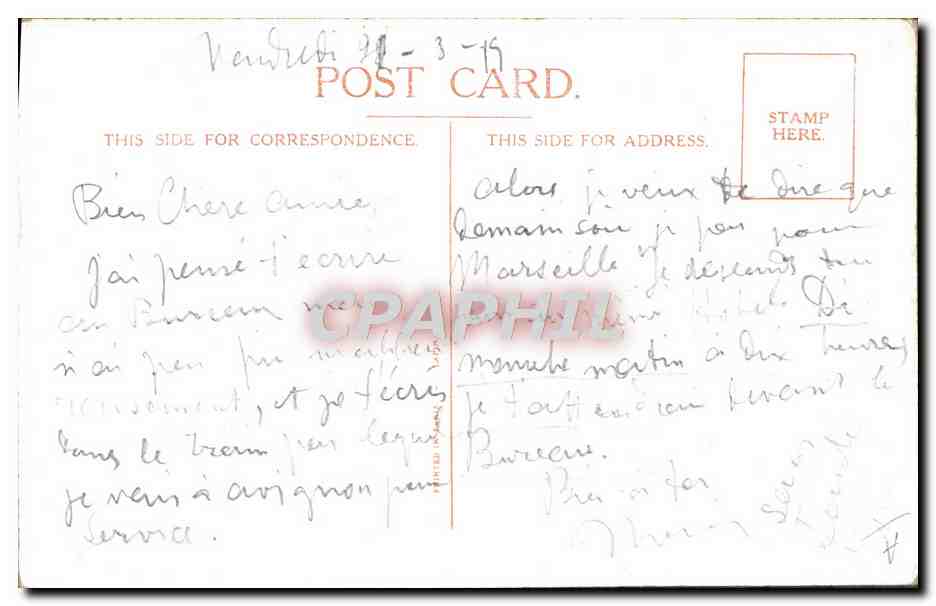 Vendredi 21-3-19
POST CARD.
THIS SIDE FOR CORRESPONDENCE.
THIS SIDE FOR ADDRESS.
STAMP
HERE.
Bien Chere amie,
j'ai pensé t'écrire
au Bureau mais
n'ai pas pu malheu
reusement, et je t'écris
dans le train par lequel
je vais à avignon pour
Service.
alors je veux te dire que
Demain soir je pars pour
Marseille je descends
Hotel Di
manche matin à dix heures
je t'attendrai devant le
Bureau.
Bien à toi
CPAPHIL
PRINTED IN